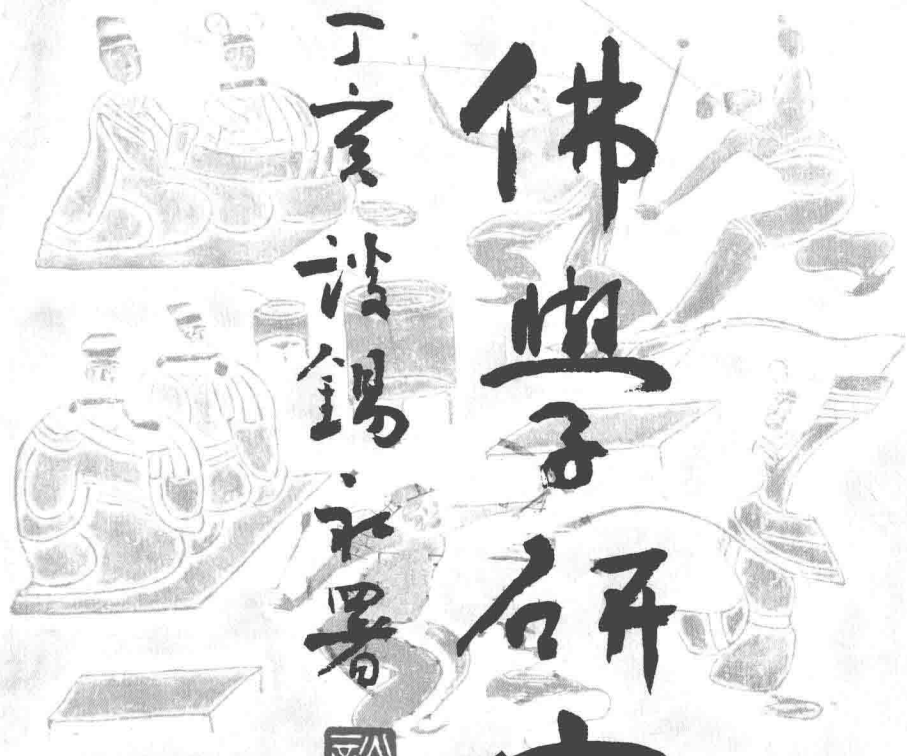 佛學研
丁亥談錫永署